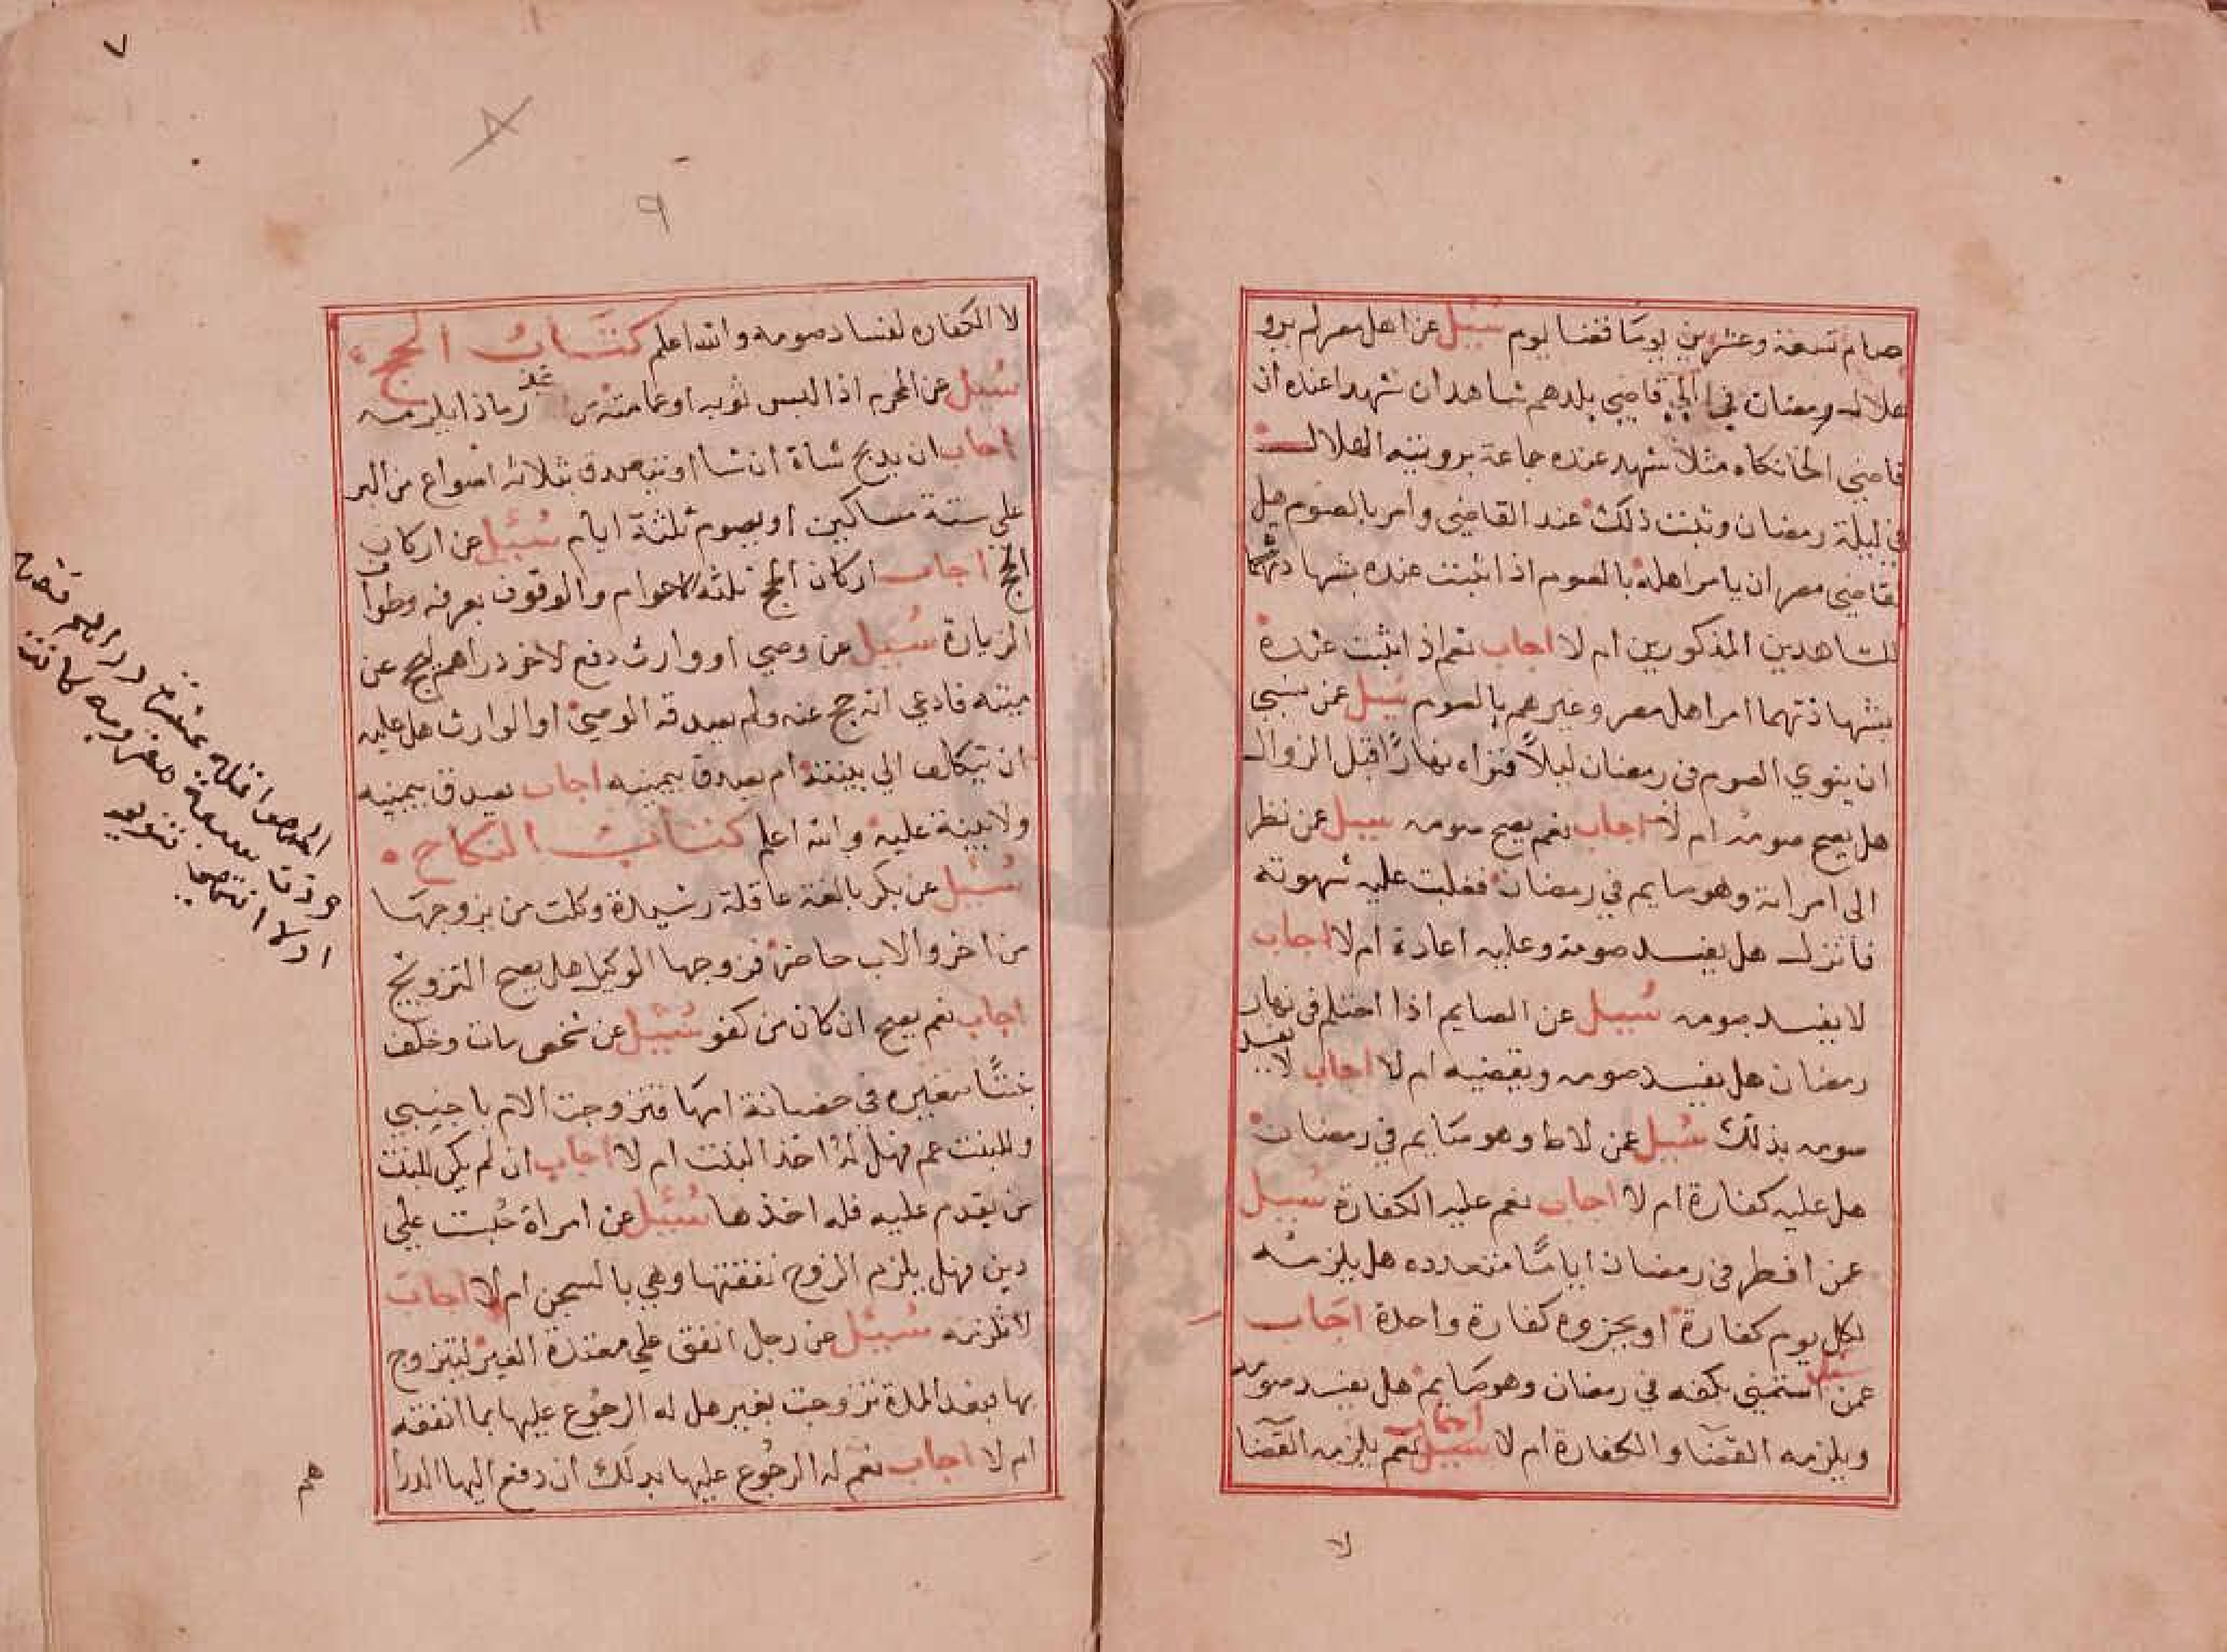 صام تسعة وعشرين يوما قضا يوم سيل عن اهل مصر لم يرو
هلال رمضان في الي قاضي بلدهم شاهدان شهدا عنده ان
قاضي الخانكاه مثلا شهد عنده جماعة بروية الهلال
في ليلة رمضان وثبت ذلك عند القاضي وامر بالصوم هل
لقاضي مصر ان يامر اهله بالصوم اذا ثبت عنده بشهادتهما
الشاهدين المذكورين ام لا اجاب نعم اذا ثبت عنده
بشهادتهما امر اهل مصر وغيرهم بالصوم سيل عمن نسي
ان ينوي الصوم في رمضان ليلاً فنواه نهارًا قبل الزوال
هل يصح صومه ام لا اجاب نعم يصح صومه سيل عمن نظر
الى امراته وهو صايم في رمضان فغلبت عليه شهوته
فانزل هل يفسد صومه وعليه اعادة ام لا اجاب
لا يفسد صومه سيل عن الصايم اذا احتلم في نهار
رمضان هل يفسد صومه ويقضيه ام لا اجاب لا يفسد
صومه بذلك سيل عمن لاط وهو صايم في رمضان
هل عليه كفارة ام لا اجاب نعم عليه الكفارة سيل
عمن افطر في رمضان اياما متعدده هل يلزمه
لكل يوم كفارة او يجزوه كفارة واحدة اجاب
سيل
عمن استمني بكفه في رمضان وهو صايم هل يفسد صومه
ويلزمه القضا والكفارة ام لا اجاب نعم يلزمه القضا
لا
٧
٨
٩
لا الكفاره لفساد صومه والله اعلم كتاب الحج
سيل عن المحرم اذا لبس ثوبه او عمامته من غير عذر ماذا يلزمه
اجاب ان يذبح شاة ان شا او يتصدق بثلاثه اصواع من البر
علي ستة مساكين او يصوم ثلثة ايام سئيل عن اركان
الحج اجاب اركان الحج ثلثه الاحرام والوقوف بعرفه وطواف
الزيارة سيل عن وصي او وارث دفع لاخر دراهم ليحج عن
ميته فادعي انه حج عنه ولم يصدقه الوصي او الوارث هل عليه
ان يتكلف الي بينته ام يصدق بيمينه اجاب يصدق بيمينه
ولا بينة عليه والله اعلم كتاب النكاح
سئيل عن بكر بالغة عاقلة رشيدة وكلت من يزوجها
من اخر والاب حاضر فزوجها الوكيل هل يصح التزويج
اجاب نعم يصح ان كان من كفو سئيل عن شخص مات وخلف
بنتًا صغيره في حضانة امها فتزوجت الام باجنبي
وللبنت عم فهل له اخذ البنت ام لا اجاب ان لم يكن للبنت
من يقدم عليه فله اخذها سئيل عن امراة حبست علي
دين فهل يلزم الزوج نفقتها وهي بالسجن ام لا اجاب
لا تلزمه سئيل عن رجل انفق علي معتدة الغير ليتزوج
بها فبعد المدة تزوجت بغير هل له الرجوع عليها بما انفقه
ام لا اجاب نعم له الرجوع عليها بذلك ان دفع اليها الدرا
هم